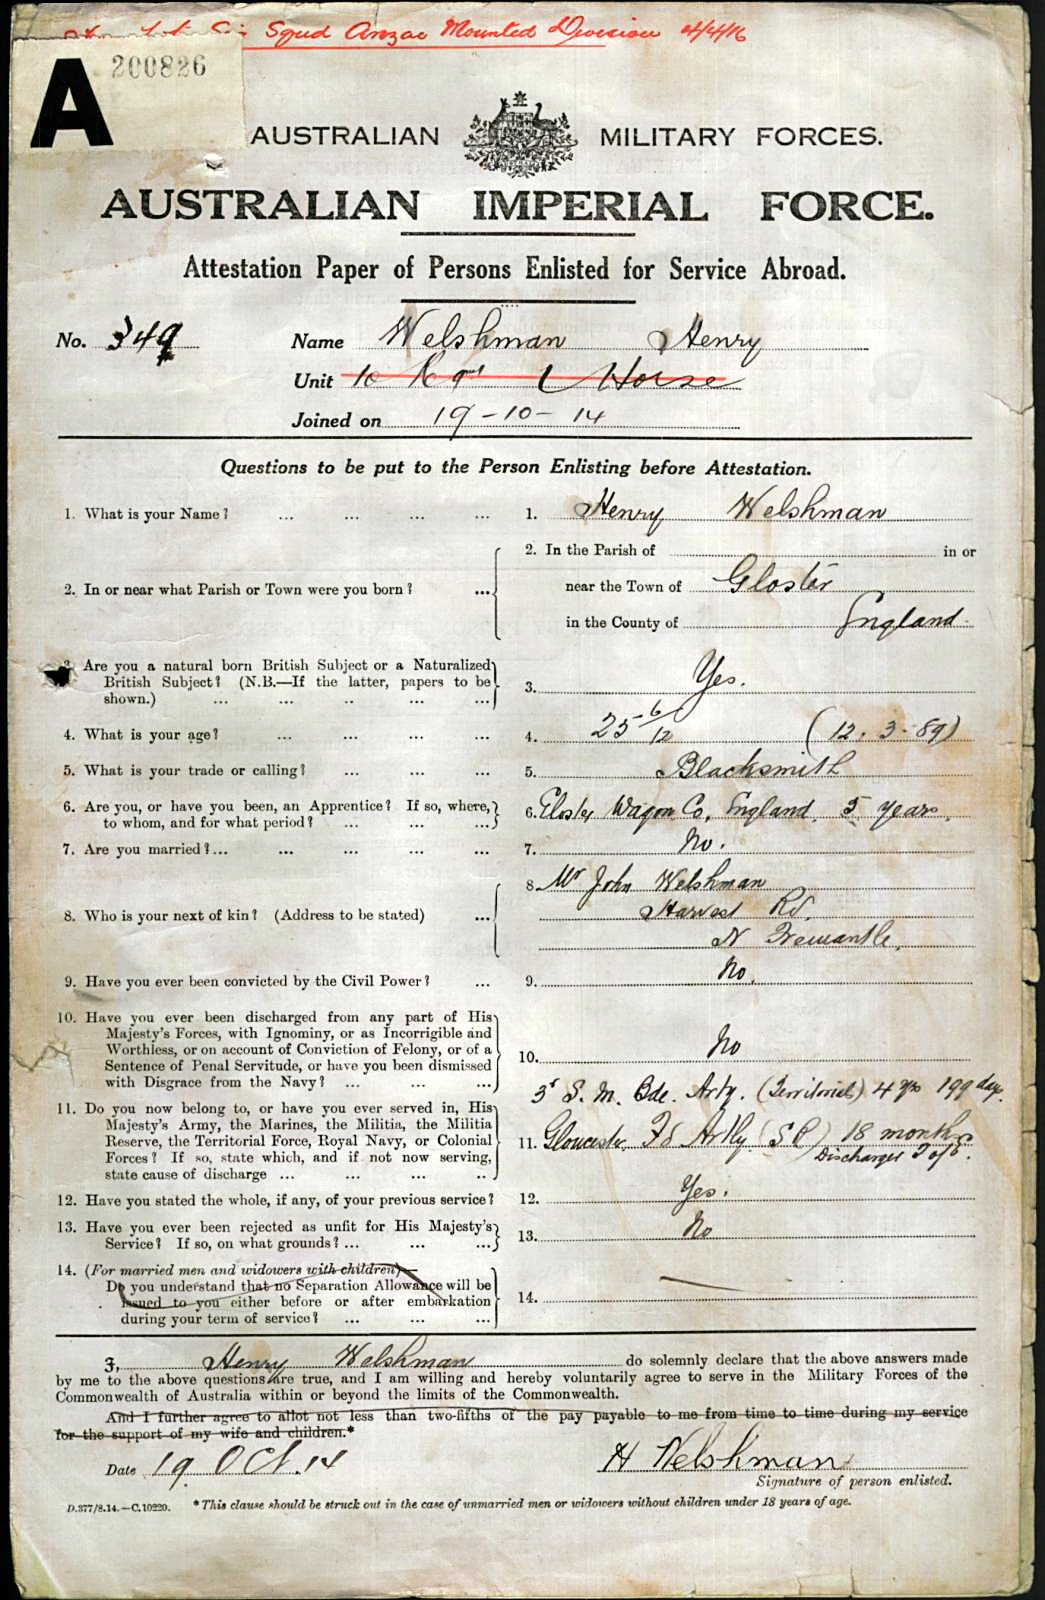 Sig Squd Anzac Mounted Division 4/4/16
A 200826
AUSTRALIAN MILITARY FORCES.
AUSTRALIAN IMPERIAL FORCE.
Attestation Paper of Persons Enlisted for Service Abroad.
No. 349 Name Welshman Henry
Unit 10 Horse
Joined on 19-10-14
Questions to be put to the Person Enlisting before Attestation.
1. What is your Name? ... ... ... ... 1. Henry Welshman
2. In the Parish of in or
2. In or near what Parish or Town were you born? ... near the Town of Gloster
in the County of England.
3. Are you a natural born British Subject or a Naturalized
British Subject? (N.B.—If the latter, papers to be
shown.) ... ... .. ... ... 3. Yes.
4. What is your age? ... ... ... ... 4. 25 6/12 (12.3.89)
5. What is your trade or calling? ... ... ... 5. Blacksmith
6. Are you, or have you been, an Apprentice? If so, where, 6. Gloster Wagon Co. England. 5 years.
to whom, and for what period? ... ... ...
7. Are you married?... ... ... ... ... 7. No.
8. Mr John Welshman
8. Who is your next of kin? (Address to be stated) ... Harvest Rd.
N Fremantle.
9. Have you ever been convicted by the Civil Power? ... 9. No.
10. Have you ever been discharged from any part of His
Majesty's Forces, with Ignominy, or as Incorrigible and
Worthless, or on account of Conviction of Felony, or of a
Sentence of Penal Servitude, or have you been dismissed
with Disgrace from the Navy? ... ... ... 10. No
3r S. M. Bde. Arty. (Territorials) 4 yrs 199 days.
11. Do you now belong to, or have you ever served in, His
Majesty's Army, the Marines, the Militia, the Militia
Reserve, the Territorial Force, Royal Navy, or Colonial
Forces? If so, state which, and if not now serving,
state cause of discharge ... ... ... .. 11. Gloucester Fd Artlly (S R) 18 months
Discharged
12. Have you stated the whole, if any, of your previous service? 12. Yes.
13. Have you ever been rejected as unfit for His Majesty's
Service? If so, on what grounds? ... ... ... 13. No
14. (For married men and widowers with children)—
Do you understand that no Separation Allowance will be
issued to you either before or after embarkation
during your term of service? ... ... ... 14. —
I, Henry Welshman do solemnly declare that the above answers made
by me to the above questions are true, and I am willing and hereby voluntarily agree to serve in the Military Forces of the
Commonwealth of Australia within or beyond the limits of the Commonwealth.
And I further agree to allot not less than two-fifths of the pay payable to me from time to time during my service
for the support of my wife and children.*
Date 19 Oct. 14 H Welshman
Signature of person enlisted.
D.377/8.14.—C.10220. * This clause should be struck out in the case of unmarried men or widowers without children under 18 years of age.